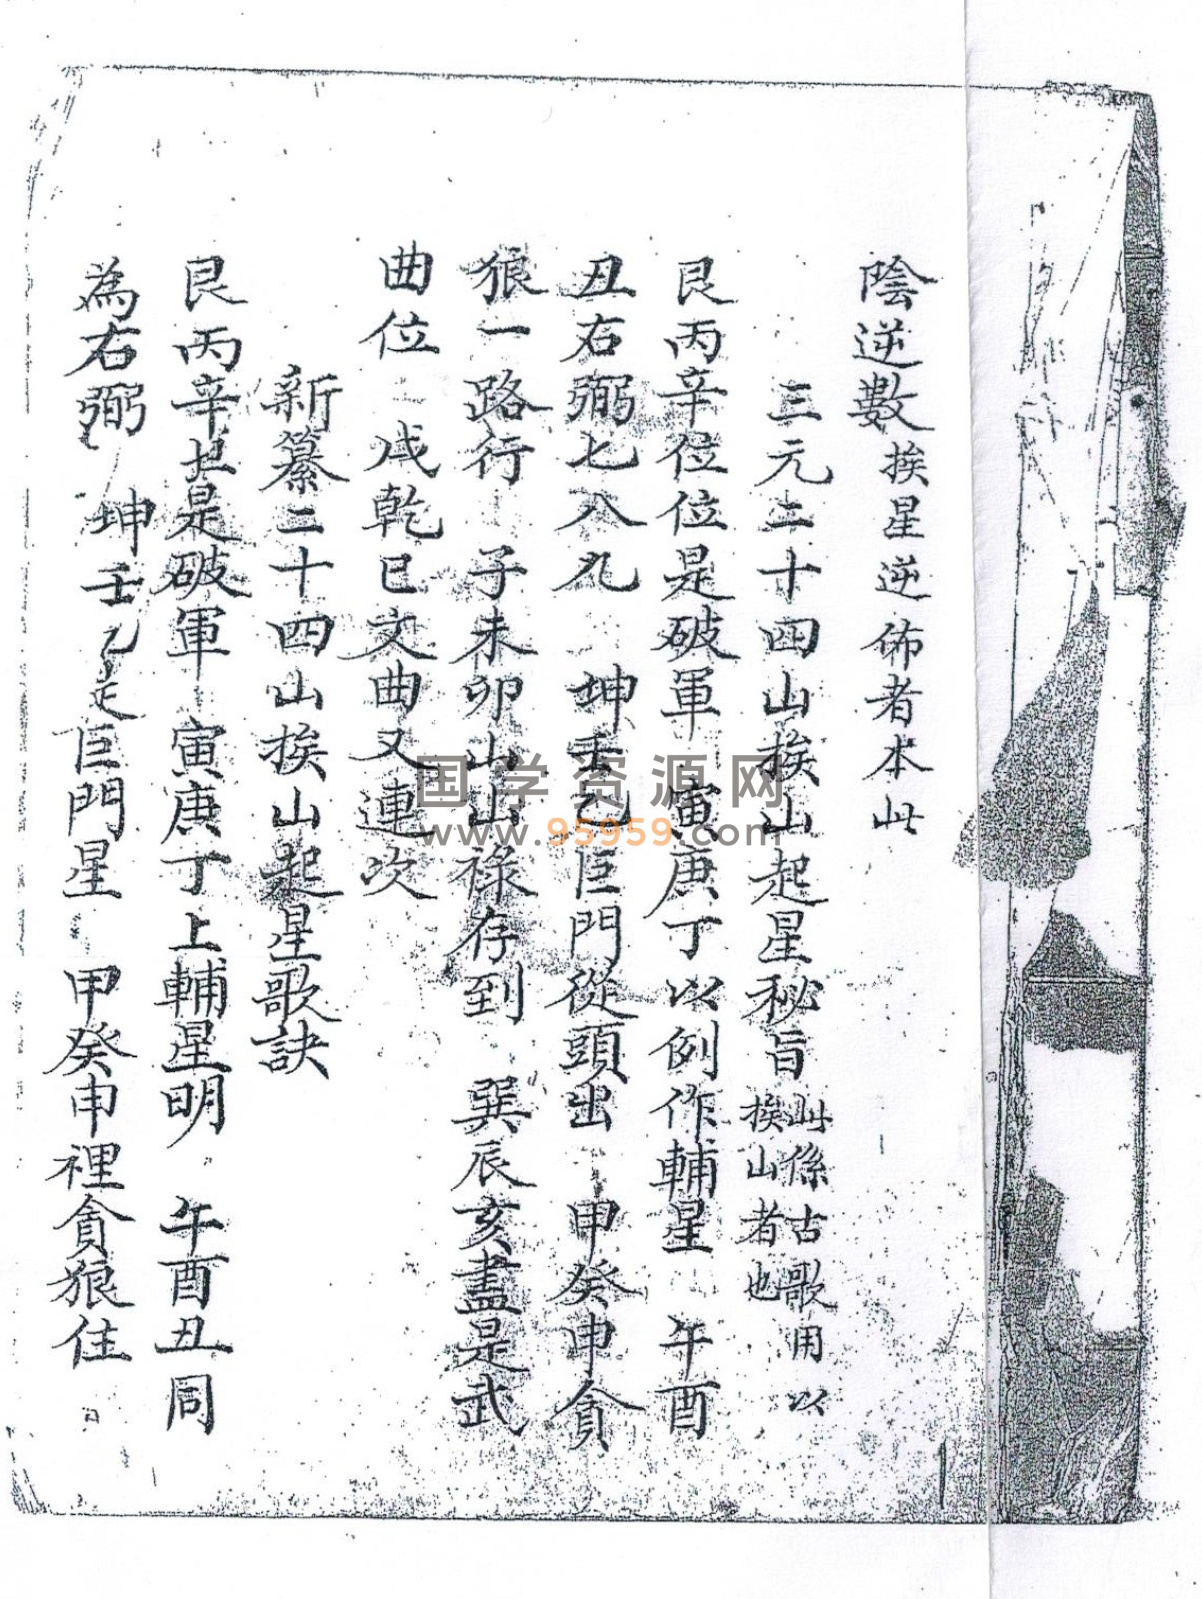 陰逆數挨星逆佈者本此
三元二十四山挨山起星秘旨此係古歌用以挨山者也
艮丙辛位位是破軍 寅庚丁以例作輔星 午酉
丑右弼七八九 坤壬乙巨門從頭出 甲癸申貪
狼一路行 子未卯山山祿存到 巽辰亥盡是武
曲位 戌乾巳文曲又連次
新纂二十四山挨山起星歌訣
艮丙辛是破軍 寅庚丁上輔星明 午酉丑同
為右弼 坤壬乙走巨門星 甲癸申裡貪狼住
国学资源网
www.95959.com